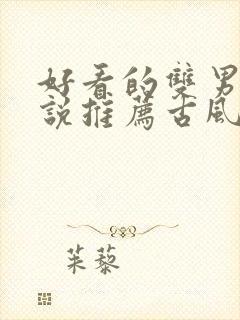 好看的雙男
說推薦古風
茱藜